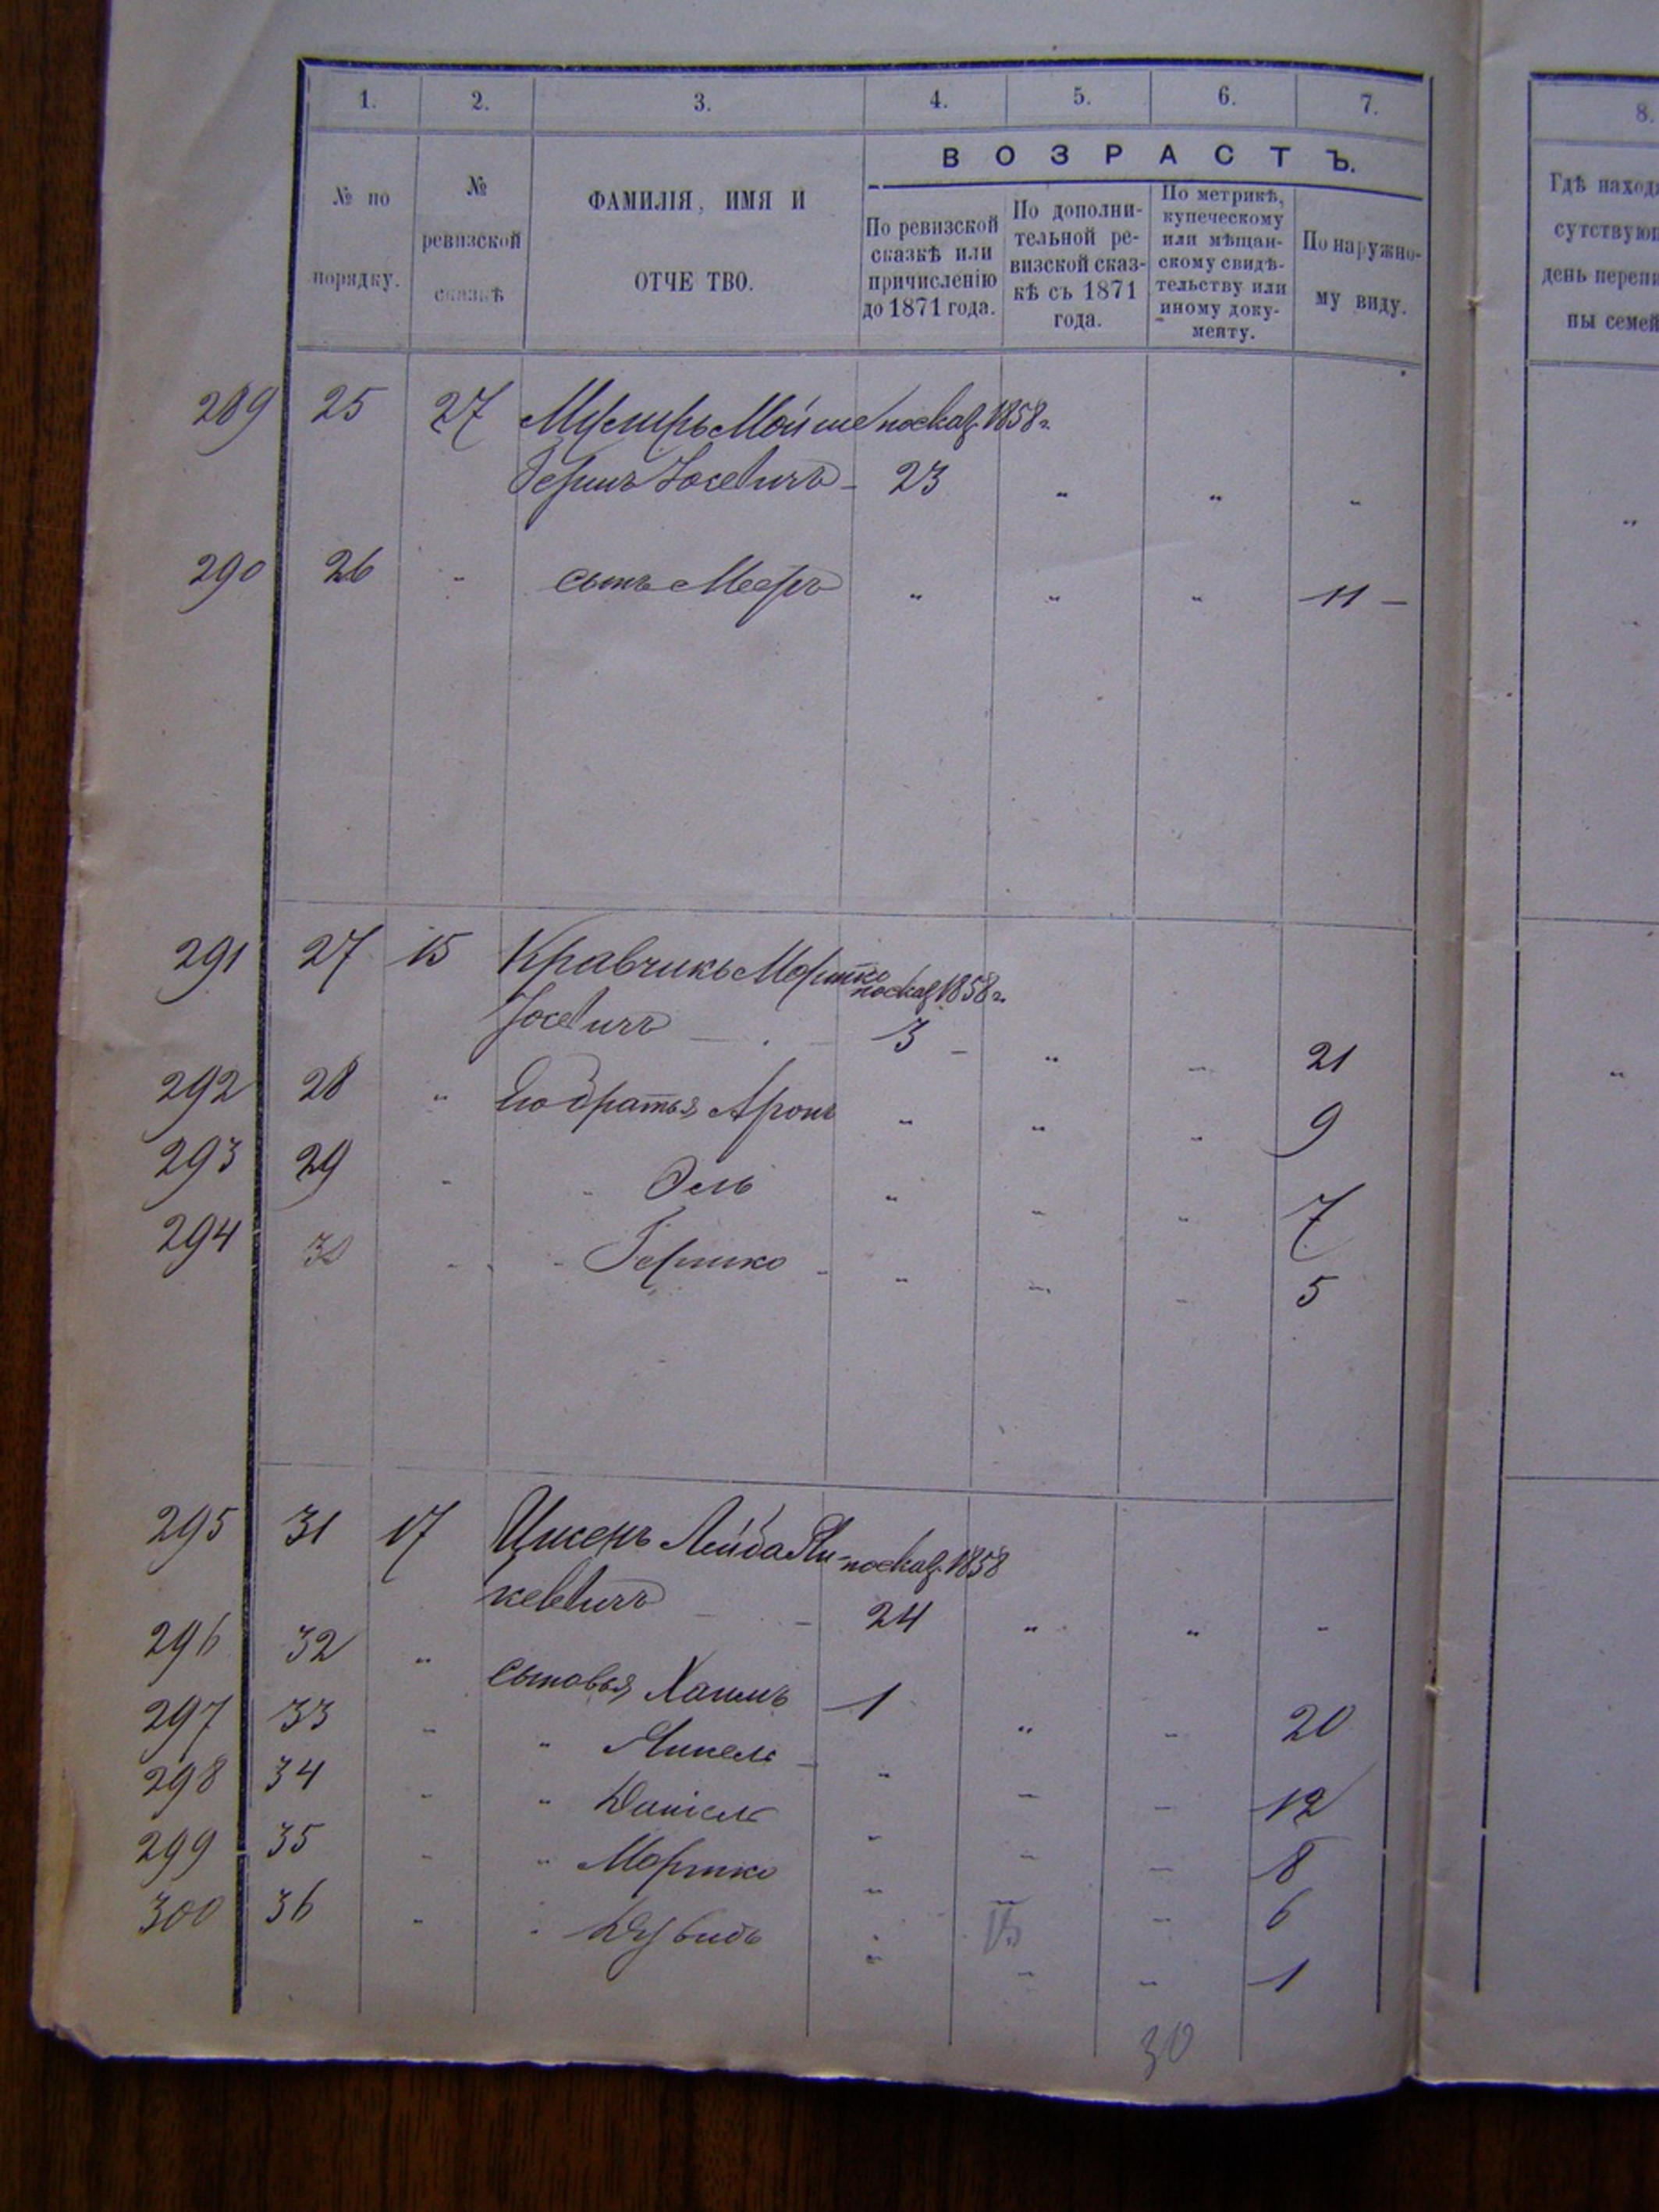 1. 2. 3. 4. 5. 6. 7.
№ по порядку.
№ ревизской сказкѣ
ФАМИЛІЯ, ИМЯ И
ОТЧЕ ТВО.
ВОЗРАСТЪ.
По ревизской
сказкѣ или
причисленію
до 1871 года.
По дополни-
тельной ре-
визской сказ-
кѣ съ 1871
года.
По метрикѣ,
купеческому
или мѣщан-
скому свидѣ-
тельству или
иному доку-
менту.
По наружно-
му виду.
8.
Гдѣ наход
сутствую
день переп
ны семей
289 25 27 Мойше по сказ. 1858 г.
Іосевичъ 23 " " "
290 26 " сынъ Мееръ " " " 11
291 27 15 Кравчикъ Мошко по сказ 1858 г.
Іосевичъ 3 " " 21
292 28 " Его братья Аронъ " " " 9
293 29 " " " " " 7
294 30 " " Гершко " " " 5
295 31 17 Лейба Ян- по сказ. 1858
кевичъ 24 " " "
296 32 " сыновья Хаимъ 1 " " 20
297 33 " " Янкель " " " 12
298 34 " " Даніель " " " 8
299 35 " " Мошко " " " 6
300 36 " " " " " 1
30